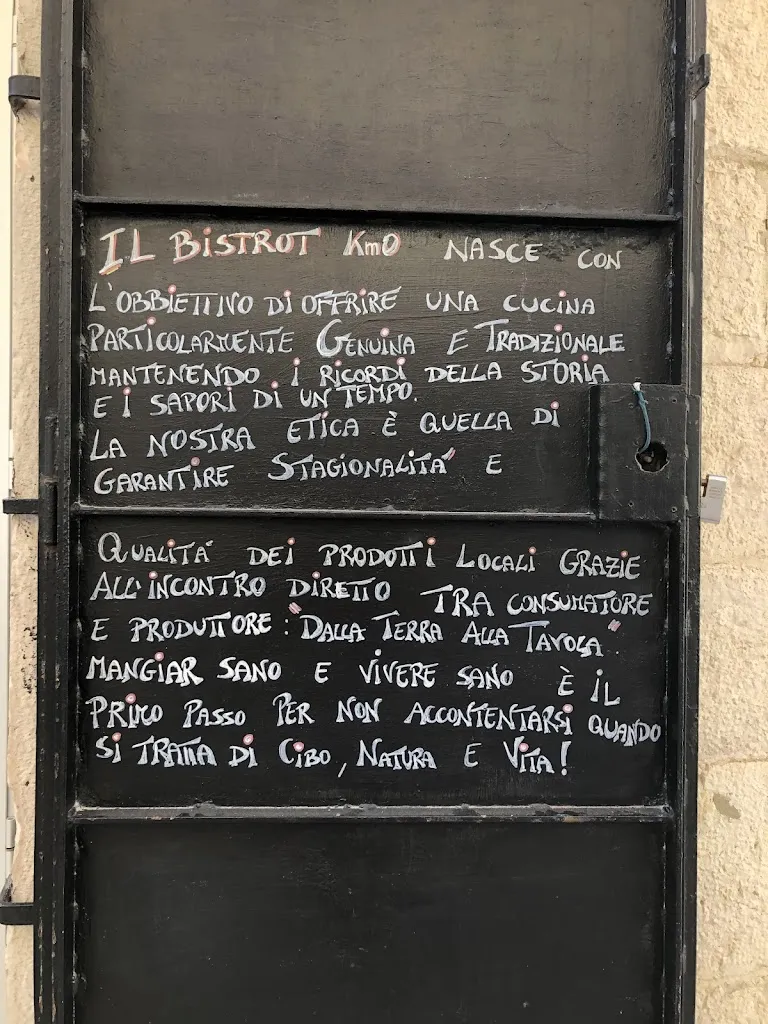 IL BISTROT Km0 NASCE CON
L'OBBIETTIVO DI OFFRIRE UNA CUCINA
PARTICOLARMENTE GENUINA E TRADIZIONALE
MANTENENDO I RICORDI DELLA STORIA
E I SAPORI DI UN TEMPO.
LA NOSTRA ETICA È QUELLA DI
GARANTIRE STAGIONALITA' E
QUALITA' DEI PRODOTTI LOCALI GRAZIE
ALL'INCONTRO DIRETTO TRA CONSUMATORE
E PRODUTTORE: "DALLA TERRA ALLA TAVOLA".
MANGIAR SANO E VIVERE SANO È IL
PRIMO PASSO PER NON ACCONTENTARSI QUANDO
SI TRATTA DI CIBO, NATURA E VITA!